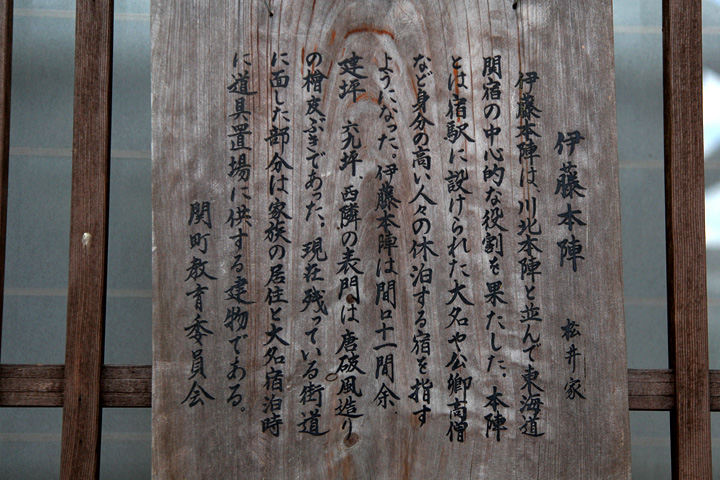 伊藤本陣 松井家
伊藤本陣は、川北本陣と並んで東海道
関宿の中心的な役割を果たした。本陣
とは宿駅に設けられた大名や公卿高僧
など身分の高い人々の休泊する宿を指す
ようになった。伊藤本陣は間口十一間余、
建坪 六九坪、西隣の表門は唐破風造り
の檜皮ぶきであった。現在残っている街道
に面した部分は家族の居住と大名宿泊時
に道具置場に供する建物である。
関町教育委員会